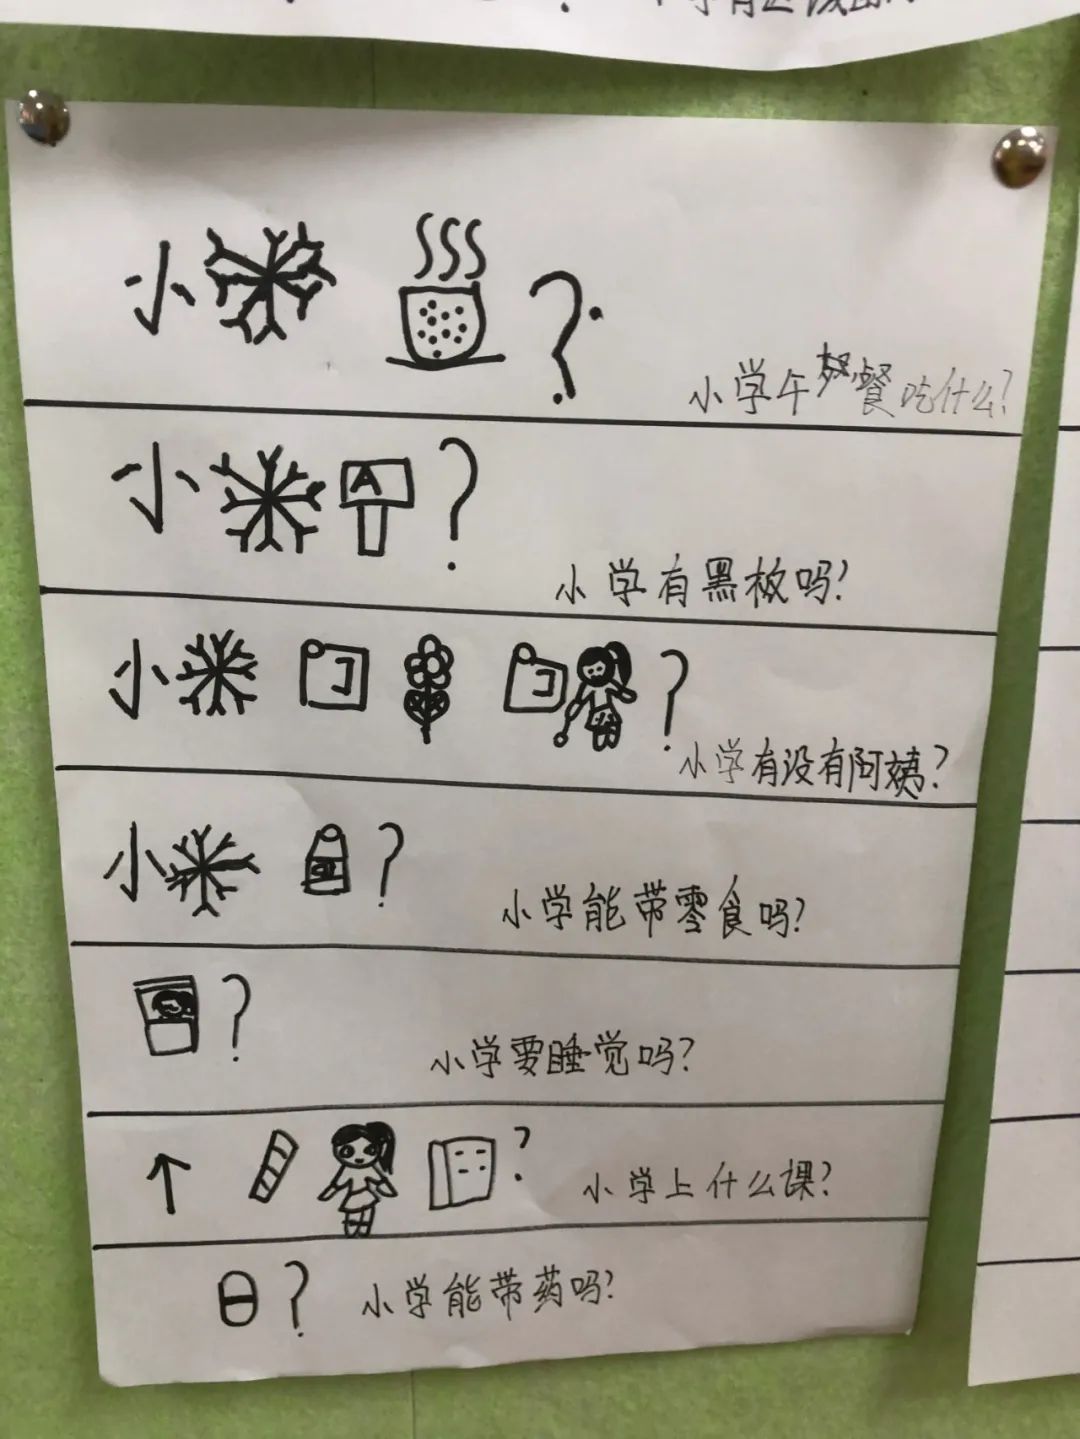 小 ? 小学午餐吃什么?
小 A ? 小学有黑板吗?
小 ? 小学有没有阿姨?
小 ? 小学能带零食吗?
? 小学要睡觉吗?
↑ ? 小学上什么课?
? 小学能带药吗?